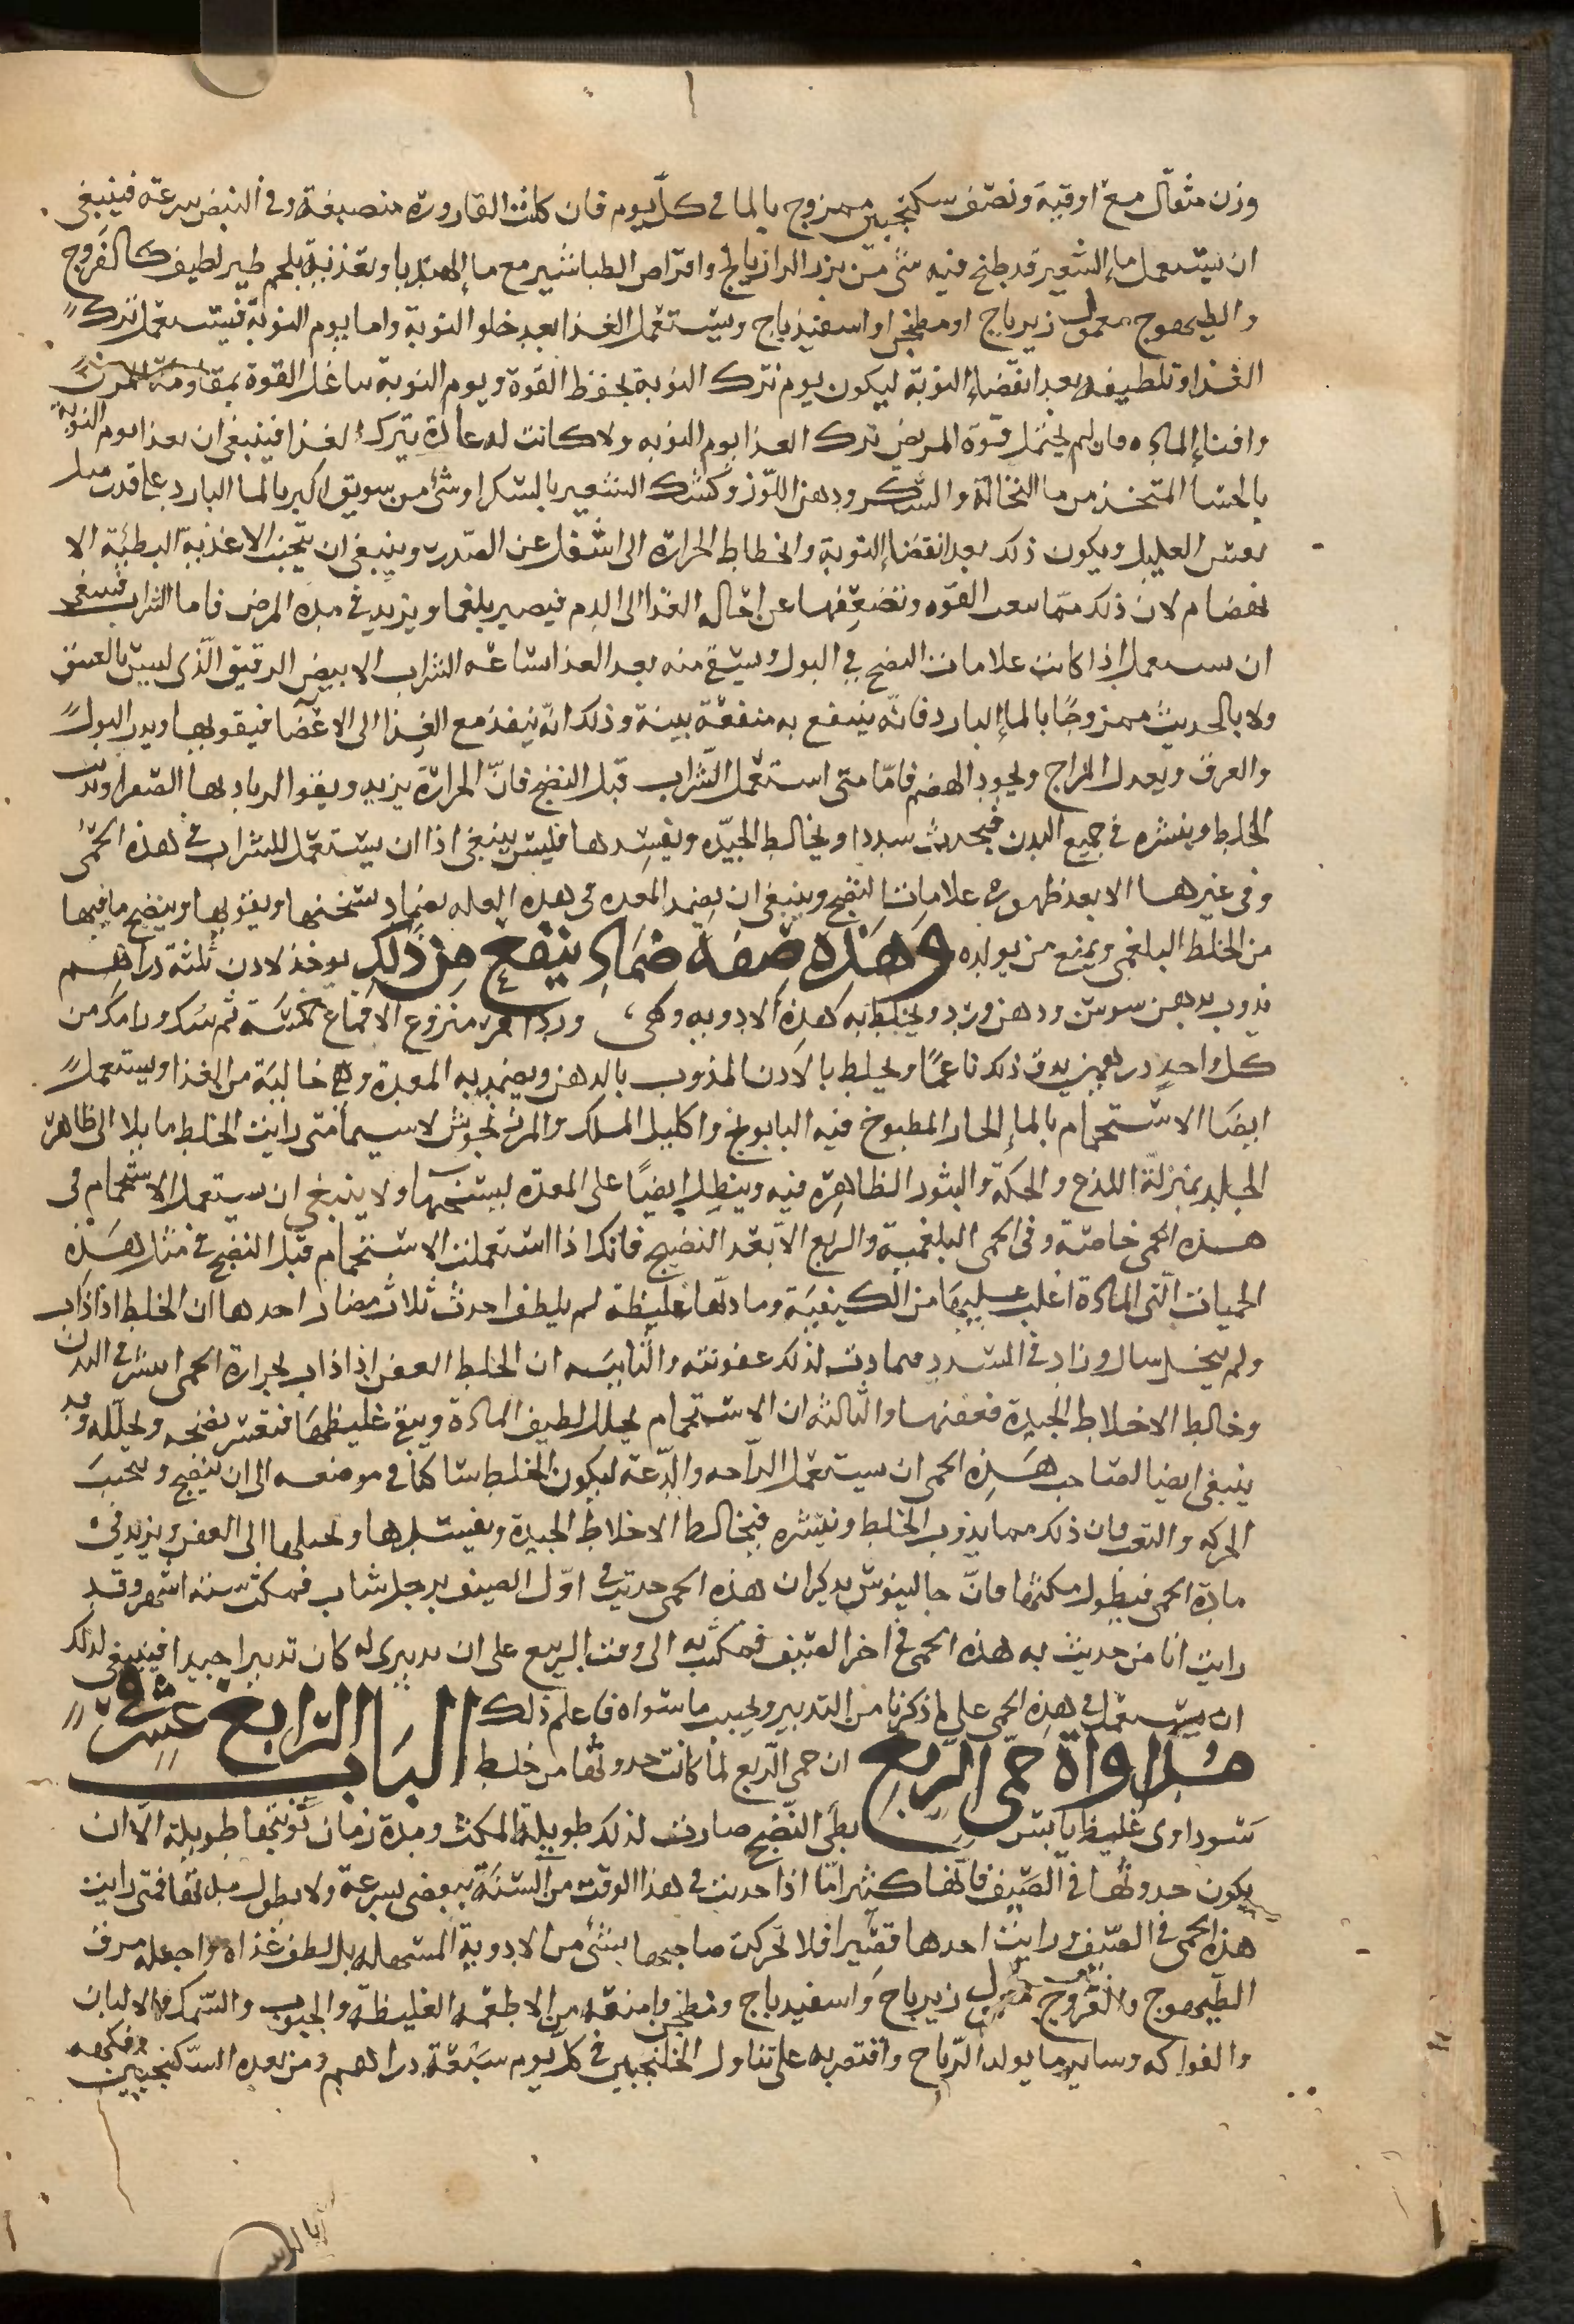 وزن مثقال مع اوقية ونصف سكنجبين ممزوج بالما في كل يوم فان كانت القارورة منصبغة وفي النبض سرعة فينبغي
ان يستعمل ماء الشعير قد طبخ فيه شئ من بزر الرازيانج واقراص الطباشير مع ماء الهندبا وتغذية بلحم طير لطيف كالفروج
والطيهوج معمول زيرباج او مطجن او اسفيذباج ويستعمل الغذا بعد خلو النوبة واما يوم النوبة فيستعمل ترك
الغذا وتلطيفه بعد انقضاء النوبة ليكون يوم ترك النوبة يحفظ القوة ويوم النوبة القوة بمقاومة المرض
وافناء المادة فان لم يحتمل قوة المريض ترك الغذا يوم النوبه ولا كانت له عادة بترك الغذا فينبغي ان يغذا يوم النوبة
بالحسا المتخذ من ما النخالة والسكر ودهن اللوز وكشك الشعير بالسكر او شئ من سويق بالما البارد على قدر ميل
نفس العليل ويكون ذلك بعد انقضاء النوبة وانحطاط الحرارة الى اسفل عن الصدر وينبغي ان يتجنب الاغذية البطية الا
نهضام لان ذلك مما القوه وتضعفها عن احالة الغذا الى الدم فيصير بلغما ويزيد في مدة المرض فاما الشراب فينبغي
ان يستعمل اذا كانت علامات النضج في البول ويسقى منه بعد الغذا ساعه الشراب الابيض الرقيق الذي ليس بالعتيق
ولا بالحديث ممزوجا بالماء البارد فانه ينتفع به منفعة بينة وذلك انه ينفذ مع الغذا الى الاعضا فيقويها ويدر البول
والعرق ويعدل المزاج ويجود الهضم فاما متى استعمل الشراب قبل النضج فان الحرارة يزيد ويقوا
الخلط وينشره في جميع البدن فيحدث سددا ويخالط الجيده ويفسدها فليس ينبغي اذا ان يستعمل الشراب في هذه الحمى
وفي غيرها الا بعد ظهور علامات النضج وينبغي ان يضمد المعده في هذه العله بضماد يسخنها ويقويها وينضج ما فيها
من الخلط البلغمي ويمنع من تولده وهذه صفة ضماد ينفع من ذلك يوخذ لادن ثلثة دراهم
يذوب بدهن سوسن ودهن ورد ويخلط به هذه الادويه وهى ورد احمر منزوع الاقماع خمسة ثم سك ورامك من
كل واحد درهمين يدق ذلك ناعما ويخلط بالادن المذوب بالدهن ويضمد به المعدة وهي خالية من الغذا ويستعمل
ايضا الاستحمام بالماء الحار المطبوخ فيه البابونج واكليل الملك والمرزنجوش لاسيما متى رايت الخلط مايلا الى ظاهر
الجلد بمنزلة اللذع والحكة والبثور الظاهرة فيه وينطل ايضا على المعدة ليسخنها ولا ينبغي ان يستعمل الاستحمام في
هذه الحمى خاصة وفي الحمى البلغمية والربع الا بعد النضج فانك اذا استعملت الاستحمام قبل النضج في مثل هذه
الحميات التي المادة اغلب عليها من الكيفية ومادتها غليظة لم يلطف احدث ثلاث مضار احدها ان الخلط اذا ذاب
ولم يتحلل سال وزاد في السدد فيزادت لذلك عفونته والثانيه ان الخلط العفن اذا ذاب بحرارة الحمى انتشر في البدن
وخالط الاخلاط الجيدة فعفنها والثالثه ان الاستحمام يحلل لطيف المادة ويبقى غليظها فتعسر نضجه وتحلله وقد
ينبغي ايضا لصاحب هذه الحمى ان يستعمل الراحه والدعة ليكون الخلط ساكنا في موضعه الى ان ينضج ويتجنب
الحركة والتعب فان ذلك مما يذوب الخلط وينشره فيخالط الاخلاط الجيدة ويفسدها ويحيلها الى العفن ويزيد في
مادة الحمى فيطول مكثها فان جالينوس يذكر ان هذه الحمى حدثت في اول الصيف برجل شاب فمكث ستة اشهر وقد
رايت انا من حديث به هذه الحمى في اخر الصيف فمكث به الى وقت الربيع على ان تدبيري له كان تدبيرا جيدا فينبغي لذلك
ان يستعمل في هذه الحمى على ما ذكرنا من التدبير ويجنب ما سواه فاعلم ذلك الباب الرابع عشر في
مداواة حمى الربع ان حمى الربع لما كانت حدوثها من خلط
سوداوي غليظ يابس بطى النضج صارت لذلك طويلة المكث ومدة زمان نوبتها طويلة الا ان
يكون حدوثها في الصيف فانها كثيرا ما اذا حدثت في هذا الوقت من السنة ينقضى بسرعة ولا يطول مدتها فمتى رايت
هذه الحمى في الصيف ورايت احدها قصيرا فلا تحركن صاحبها بشئ من الادوية المسهله بل لطف غذاه واجعله مرق
الطيهوج والفروج معمول زيرباج واسفيدباج ومطجن وامنعه من الاطعمه الغليظة والحبوب والسمك والالبان
والفواكه وساير ما يولد الرياح واقتصر به على تناول الخلنجبين في كل يوم سبعة دراهم ومن بعده السكنجبين